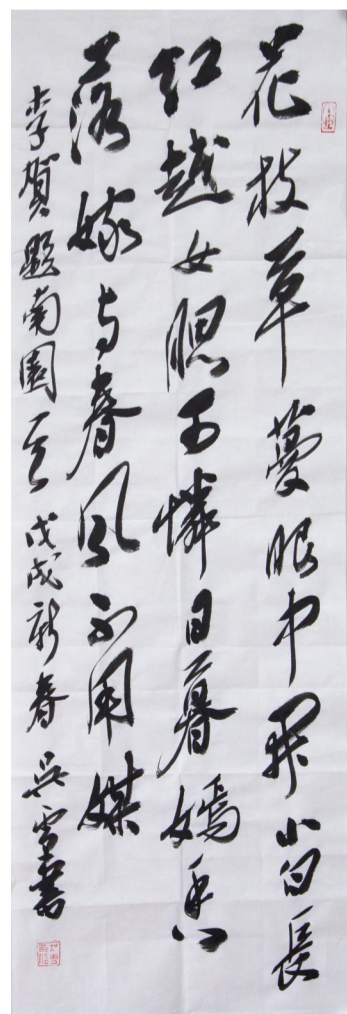 花枝草蔓眼中開小白長
紅越女腮可憐日暮嫣香
落嫁与春風不用媒
李賀題南園 戊戌新春 吳雪書